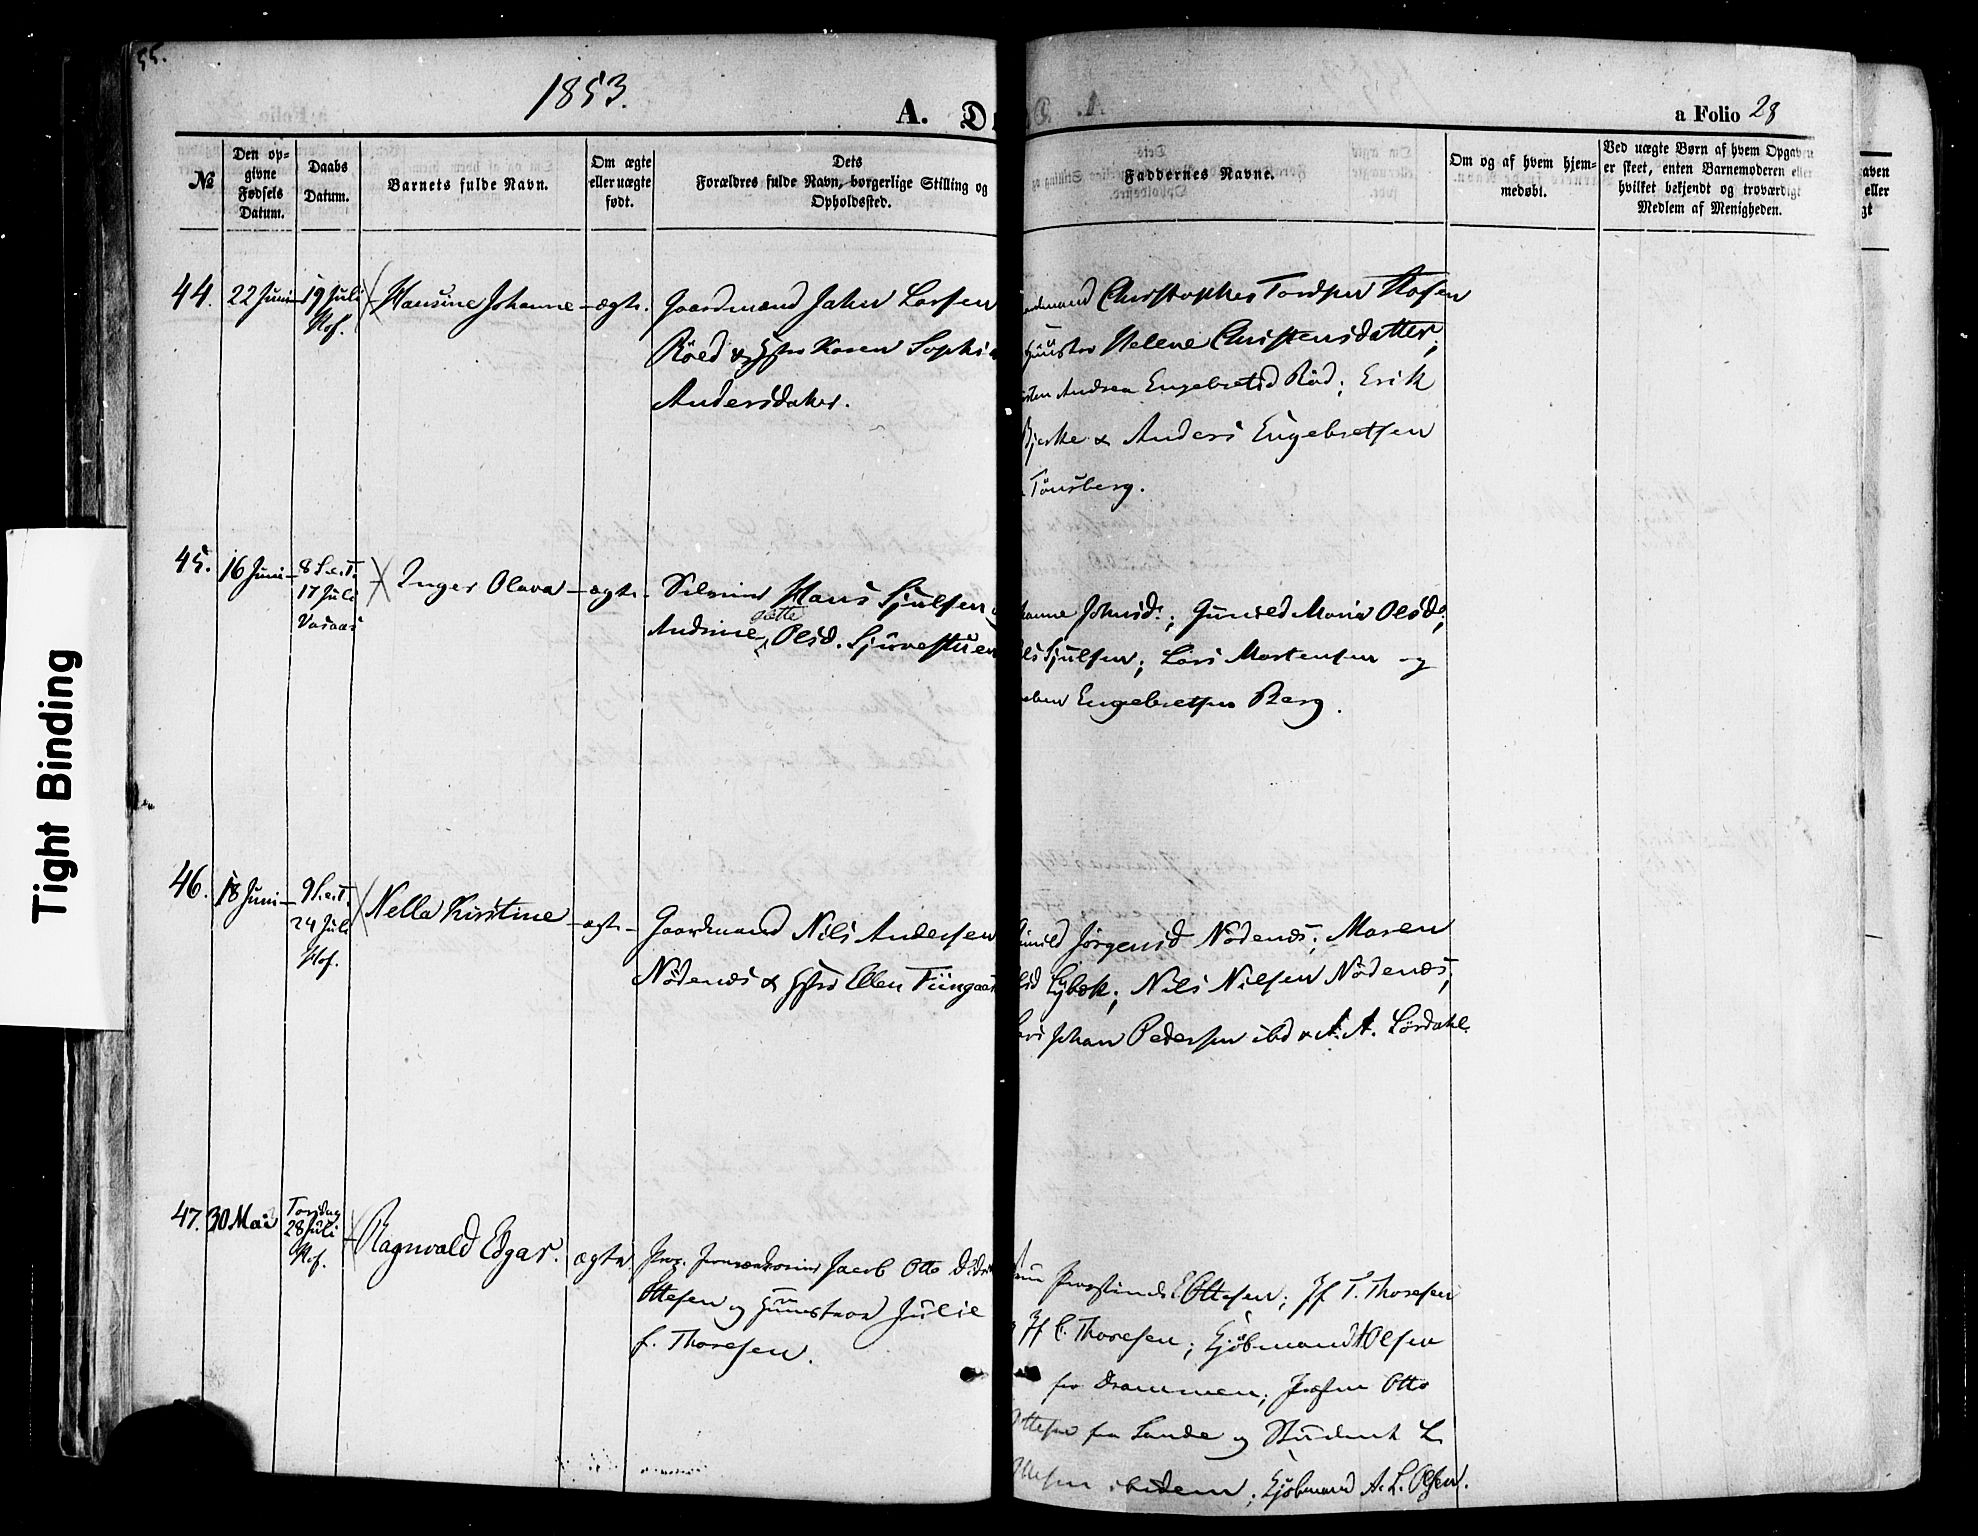 55.
1853.
A. D
a Folio 28
№
Den op-
givne
Fødsels
Datum.
Daabs
Datum.
Barnets fulde Navn.
Om ægte
eller uægte
født.
Dets
Forældres fulde Navn, borgerlige Stilling og
Opholdssted.
Faddernes Navne.
Om og af hvem hjem-
medøbt.
Ved uægte Børn af hvem Opgaven
er skeet, enten Barnemoderen eller
hvilket bekjendt og troværdigt
Medlem af Menigheden.
44. 22 Juni 19 Juli Hansine Johanne ægte. Gaardmand Jahn Larsen
Hof.
Röed & Hstr Karen Sophi
Andersdatter.
Christopher Tordsen Hofen
Helene Christensdatter;
Andrea Engebretsd Röd; Erik
Bjerke & Anders Engebretsen
Tönsberg.
45. 16 Juni 8 S. e. T. Inger Olava ægte Hans Sjulsen
17 Juli
Vasaas
Andrine Olsd. Sjuvestuen
Johnsd.; Gunild Maria Olsd.;
Sjulsen; Lars Mortensen og
Engebretsen Berg.
46. 18 Juni 9 S. e. T. Nella Kirstine ægte Gaardmand Nils Andersen
24 Juli
Hof.
Nödenæs & Hstr Ellen
Jörgensd Nödenæs; Maren
Eybek; Nils Nilsen Nödenæs;
Johan Pedersen ibd & A. A. Lördahl.
47. 30 Mai Torsdag
28 Juli
Hof.
Ragnvald Edgar. ægte Jacob Otto
Ottesen og Hunstroe Julie
f. Thoresen.
Ottesen; Jf T. Thoresen
Jf C. Thoresen; Kjöbmand Olsen
fra Drammen; Otto
Ottesen fra Sande og Student L.
Ottesen ibidem; Kjöbmand A. L. Olsen.
aven
eller
gt
Tight Binding